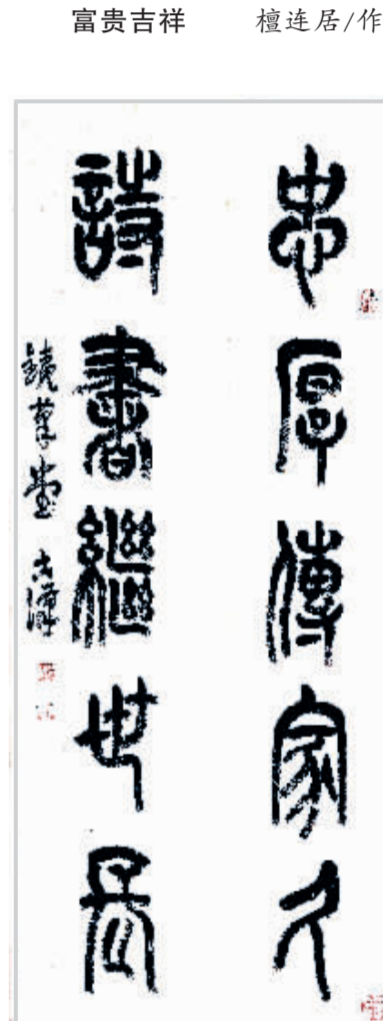 富贵吉祥 檀连居/作
忠厚傳家久
詩書繼世長